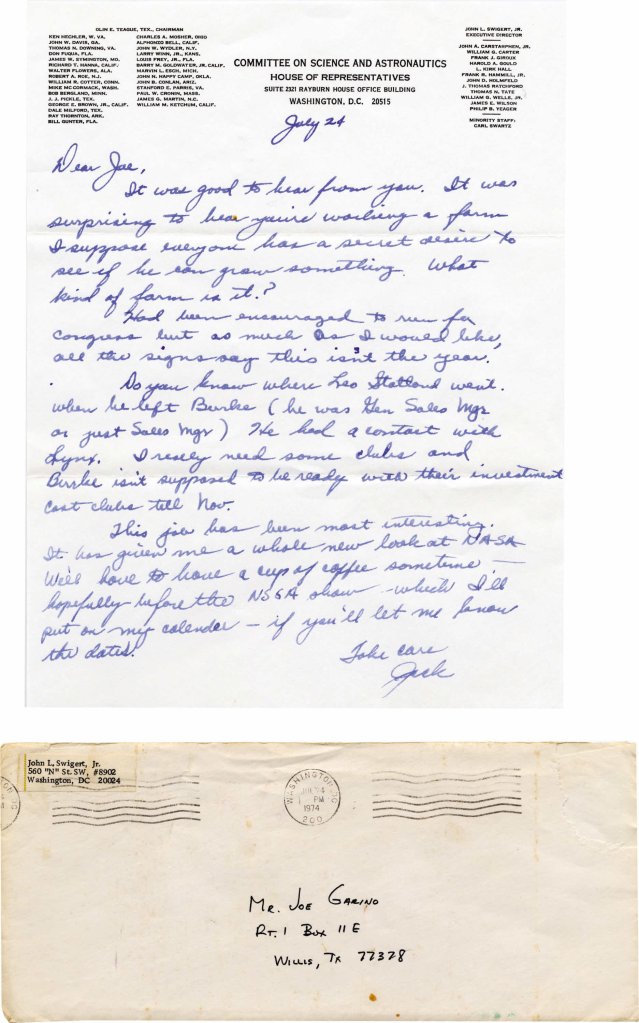 OLIN E. TEAGUE, TEX., CHAIRMAN
KEN HECHLER, W. VA.
JOHN W. DAVIS, GA.
THOMAS N. DOWNING, VA.
DON FUQUA, FLA.
JAMES W. SYMINGTON, MO.
RICHARD T. HANNA, CALIF.
WALTER FLOWERS, ALA.
ROBERT A. ROE, N.J.
WILLIAM R. COTTER, CONN.
MIKE MC CORMACK, WASH.
BOB BERGLAND, MINN.
J. J. PICKLE, TEX.
GEORGE E. BROWN, JR., CALIF.
DALE MILFORD, TEX.
RAY THORNTON, ARK.
BILL GUNTER, FLA.
CHARLES A. MOSHER, OHIO
ALPHONZO BELL, CALIF.
JOHN W. WYDLER, N.Y.
LARRY WINN, JR., KANS.
LOUIS FREY, JR., FLA.
BARRY M. GOLDWATER, JR. CALIF.
MARVIN L. ESCH, MICH.
JOHN N. HAPPY CAMP, OKLA.
JOHN B. CONLAN, ARIZ.
STANFORD E. PARRIS, VA.
PAUL W. CRONIN, MASS.
JAMES G. MARTIN, N.C.
WILLIAM M. KETCHUM, CALIF.
COMMITTEE ON SCIENCE AND ASTRONAUTICS
HOUSE OF REPRESENTATIVES
SUITE 2321 RAYBURN HOUSE OFFICE BUILDING
WASHINGTON, D.C. 20515
JOHN L. SWIGERT, JR.
EXECUTIVE DIRECTOR
JOHN A. CARSTARPHEN, JR.
WILLIAM G. CARTER
FRANK J. GIROUX
HAROLD A. GOULD
L. KIRK HALL
FRANK R. HAMMILL, JR.
JOHN D. HOLMFELD
J. THOMAS RATCHFORD
THOMAS N. TATE
WILLIAM G. WELLS, JR.
JAMES E. WILSON
PHILIP B. YEAGER
MINORITY STAFF:
CARL SWARTZ
July 24
Dear Joe,
It was good to hear from you. It was
surprising to hear you're working a farm
I suppose everyone has a secret desire to
see if he can grow something. What
kind of farm is it?
Had been encouraged to run for
Congress but as much as I would like,
all the signs say this isn't the year.
Do you know where Leo Statland went.
when he left Burke (he was Gen Sales Mgr
or just Sales Mgr) He had a contact with
Lynx. I really need some clubs and
Burke isn't supposed to be ready with their investment
cast clubs till Nov.
This job has been most interesting.
It has given me a whole new look at NASA
We'll have to have a cup of coffee sometime —
hopefully before the NSGA show - which I'll
put on my calendar — if you'll let me know
the dates.
Take care
Jack
John L. Swigert, Jr.
560 "N" St. SW, #8902
Washington, DC 20024
WASHINGTON DC
JUL 24
PM
1974
200
MR. JOE GARINO
RT. 1 BOX 11E
WILLIS, TX 77378